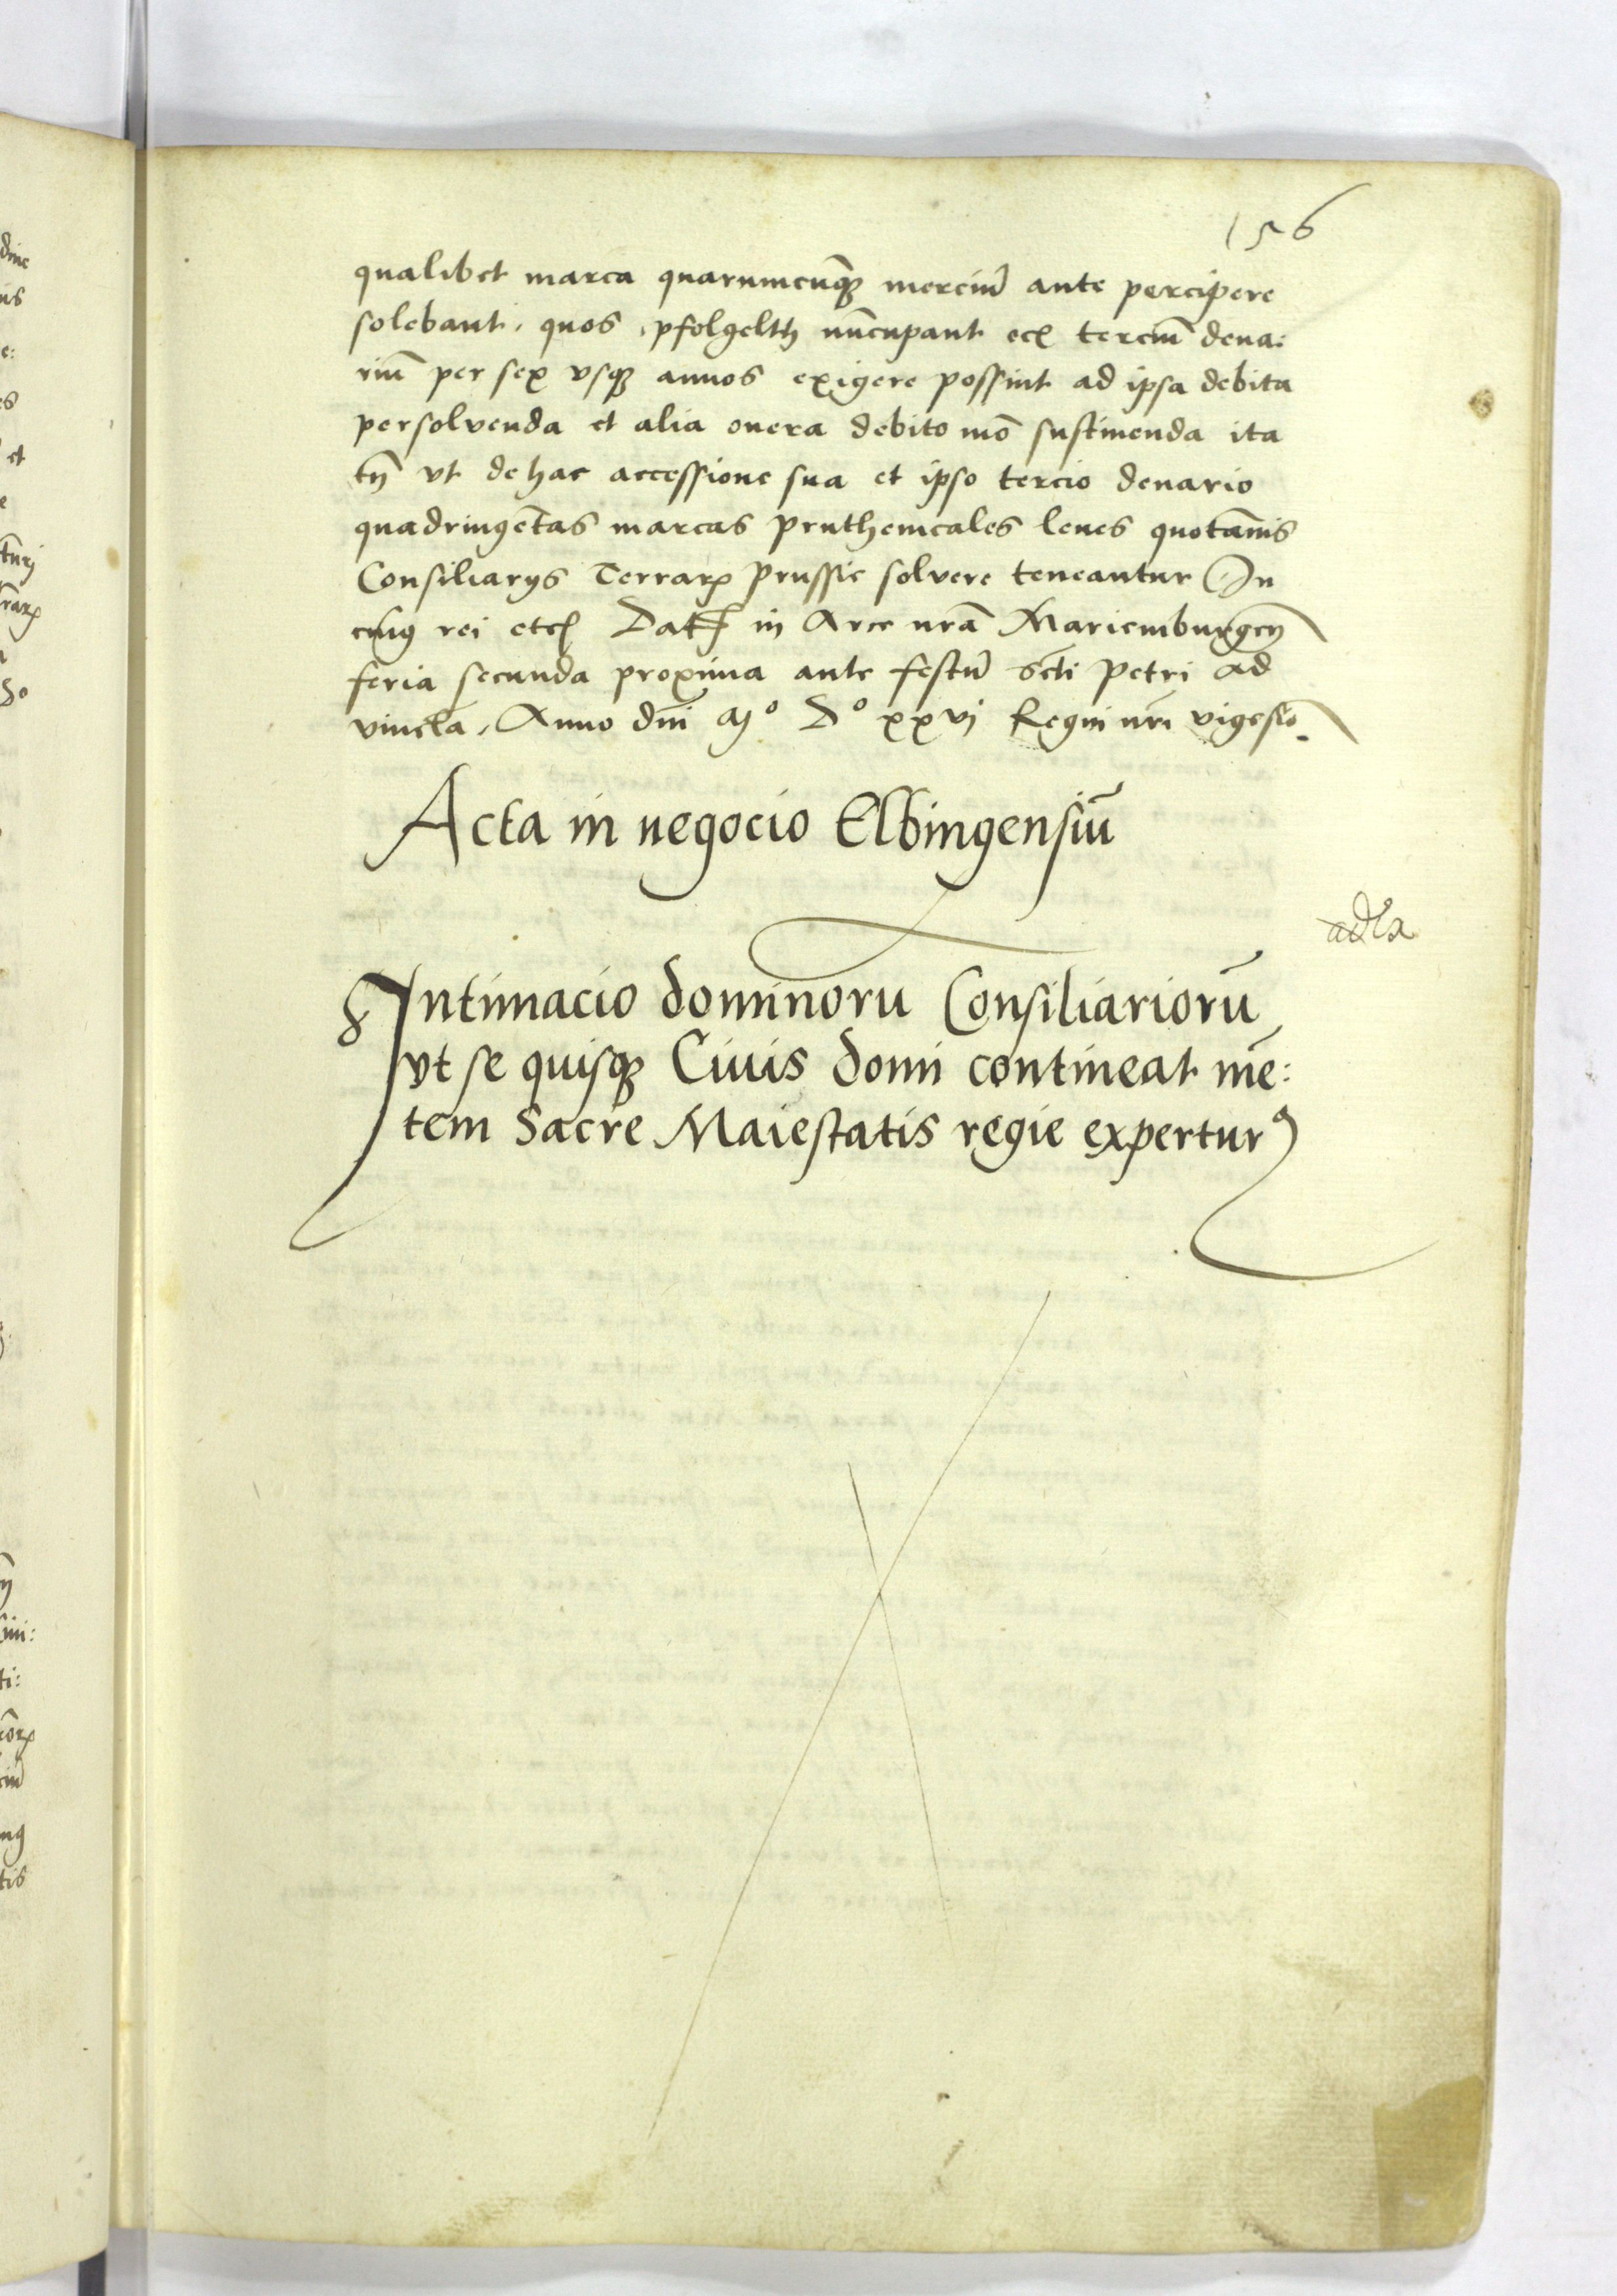 156
qualibet marca quarumcunq merciu ante percipere
solebant, quos, pfolgelth nucupant eciā terciū dena:
riū per sex vsq annos exigere possint ad ipsa debita
persolvenda et alia onera debito mō sustinenda ita
tn̄ vt de hac accessione sua et ipso tercio denario
quadringētas marcas pruthenicales leues quotānis
Consiliarys Terrarꝝ Prussie solvere teneantur In
cuiꝯ rei etc̄ Dat in Arce nrā Mariemburgen̄
feria secunda proxima ante festū scti Petri ad
vincla, Anno dnī Mº Dº xxvj Regni nrī vigesiō.
Acta in negocio Elbingensiū
Intimacio dominoru Consiliariorū
vt se quisq Ciuis domi contineat mē:
tem Sacre Maiestatis regie experturꝰ